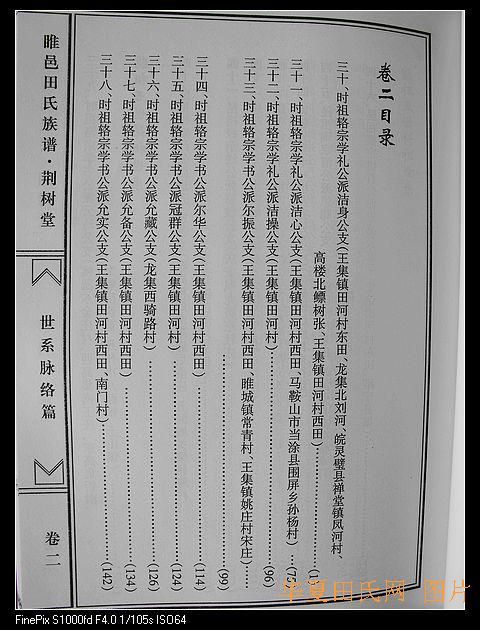 卷二目录
三十、时祖辂宗学礼公派洁身公支(王集镇田河村东田、龙集北刘河、皖灵璧县禅堂镇凤河村、
高楼北鳔树张、王集镇田河村西田)………(1
三十一、时祖辂宗学礼公派洁心公支(王集镇田河村西田、马鞍山市当涂县围屏乡孙杨村)……(75
三十二、时祖辂宗学礼公派洁操公支(王集镇田河村)………(96)
三十三、时祖辂宗学书公派尔振公支(王集镇田河村西田、睢城镇常青村、王集镇姚庄村宋庄)
………(99)
三十四、时祖辂宗学书公派尔华公支(王集镇田河村西田)………(114)
三十五、时祖辂宗学书公派冠群公支(王集镇田河村)………(124)
三十六、时祖辂宗学书公派允藏公支(龙集西骑路村)………(126)
三十七、时祖辂宗学书公派允备公支(王集镇田河村西田)………(134)
三十八、时祖辂宗学书公派允实公支(王集镇田河村西田、南门村)………(142)
睢邑田氏族谱·荆树堂
世系脉络篇
卷二
华夏田氏网 图片
FinePix S1000fd F4.0 1/105s ISO64